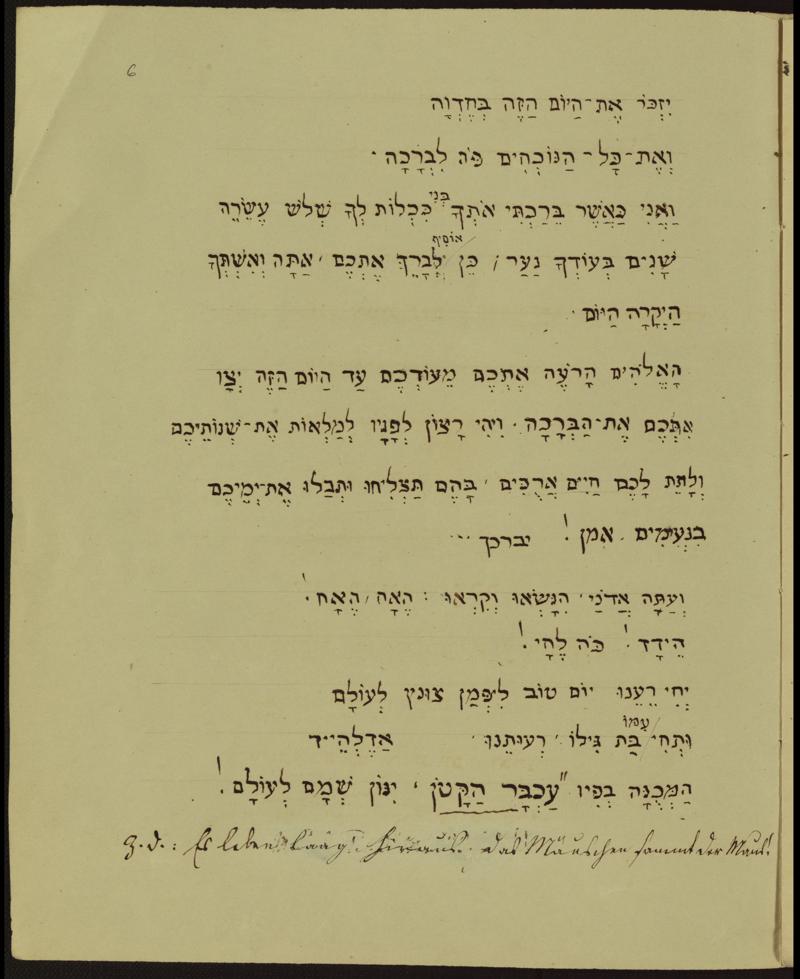 6
יִזְכֹּר אֶת־הַיּוֹם הַזֶּה בְּחֶדְוָה
וְאֶת־כָּל־הַנּוֹכְחִים פֹּה לִבְרָכָה ·
וַאֲנִי כַּאֲשֶׁר בֵּרַכְתִּי אֹתְךָ בְּנִי כִּכְלוֹת לְךָ שְׁלשׁ עֶשְׂרֵה
אוֹסִיף
שָׁנִים בְּעוֹדְךָ נַעַר, כֵּן לְבָרֵךְ אֶתְכֶם, אַתָּה וְאִשְׁתְּךָ
הַיְקָרָה הַיּוֹם ·
הָאֱלֹהִים הָרֹעֶה אֶתְכֶם מֵעוֹדְכֶם עַד הַיּוֹם הַזֶּה יְצַו
אִתְּכֶם אֶת־הַבְּרָכָה. וִיהִי רָצוֹן לְפָנָיו לְמַלְאוֹת אֶת־שְׁנוֹתֵיכֶם
וְלָתֵת לָכֶם חַיִּים אֲרֻכִּים, בָּהֶם תַּצְלִיחוּ וּתְבַלּוּ אֶת־יְמֵיכֶם
בִּנְעִימִים. אמן! יברכך ···
וְעַתָּה אֲדֹנַי, הִנָּשְׂאוּ וְקִרְאוּ: הֶאָח, הֶאָח!
הֵידָד! כֹּה לֶחָי!
יְחִי רֵעֵנוּ יוֹם טוֹב לִיפְּמַן צוּנץ לְעוֹלָם
עִמּוֹ
וּתְחִי בַּת גִּילוֹ, רְעוּתֵנוּ אַדֶלְהֵיד
הַמְּכֻנָּה בְּפִיו "עַכְבָּר הַקָּטֹן, יִנּוֹן שְׁמָם לְעוֹלָם!
z. d.: Es leben hinaus. das Mäuschen sammt der Maus!